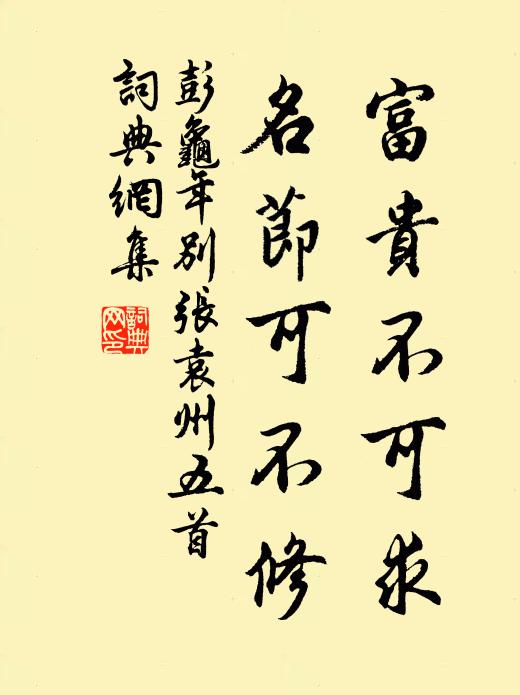 富貴不可求
名節可不修
彭龜年別張袁州五首
詞典網集
詞典網印